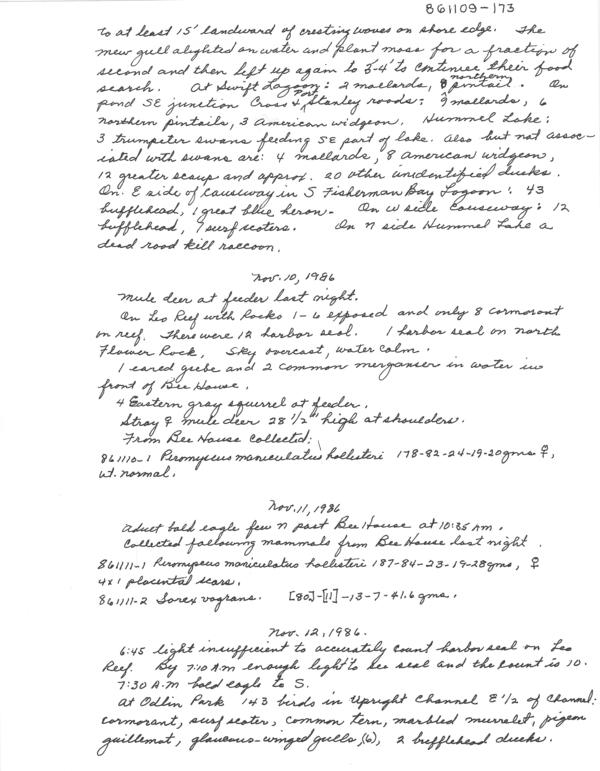 861109-173
to at least 15' landward of cresting waves on shore edge. The
mew gull alighted on water and plant mass for a fraction of
second and then left up again to 3-4' to continue their food
search. At Swift Lagoon: 2 mallards, 8 northern pintail. On
pond SE junction Cross & Port Stanley roads: 9 mallards, 6
northern pintails, 3 American widgeon. Hummel Lake:
3 trumpeter swans feeding SE part of lake. Also but not assoc-
iated with swans are: 4 mallards, 8 American widgeon,
12 greater scaup and approx. 20 other unidentified ducks.
On E side of causeway in S Fisherman Bay Lagoon: 43
bufflehead, 1 great blue heron. On W side Causeway: 12
bufflehead, 7 surf scoters. On N side Hummel Lake a
dead road kill raccoon.
Nov. 10, 1986
Mule deer at feeder last night.
On Leo Reef with Rocks 1-6 exposed and only 8 cormorant
on reef. There were 12 harbor seal. 1 harbor seal on north
Flower Rock. Sky overcast, water calm.
1 eared grebe and 2 common merganser in water in
front of Bee House.
4 Eastern gray squirrel at feeder.
Stray ♀ mule deer 28 1/2" high at shoulders.
From Bee House collected:
861110-1 Peromyscus maniculatus hollisteri 178-82-24-19-20gms ♀,
wt. normal.
Nov. 11, 1986
Adult bald eagle flew N past Bee House at 10:35 AM.
Collected following mammals from Bee House last night.
861111-1 Peromyscus maniculatus hollisteri 187-84-23-19-28gms, ♀
4x1 placental scars.
861111-2 Sorex vagrans. [80]-[11]-13-7-41.6 gms.
Nov. 12, 1986.
6:45 light insufficient to accurately count harbor seal on Leo
Reef. By 7:10 A.M enough light to see seal and the count is 10.
7:30 A.M bald eagle to S.
At Odlin Park 143 birds in Upright Channel E 1/2 of Channel:
cormorant, surf scoter, common tern, marbled murrelet, pigeon
guillemot, glaucous-winged gulls, (6), 2 bufflehead ducks.